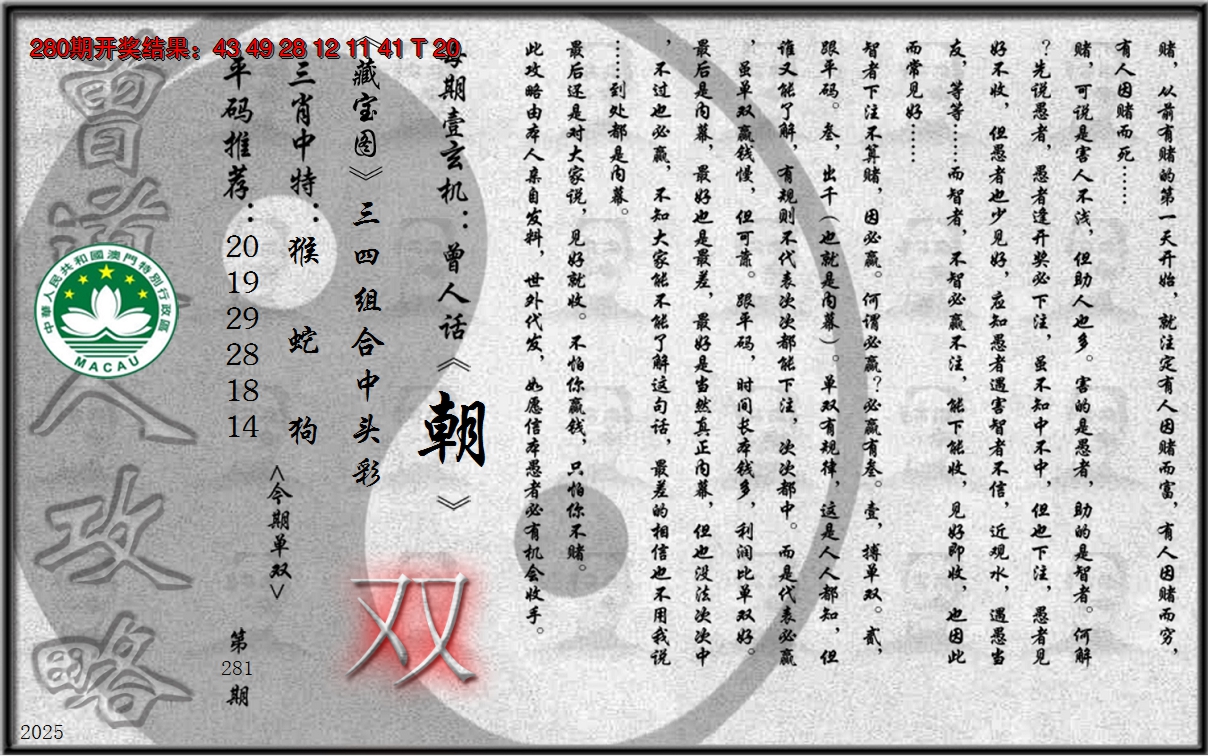 280期开奖结果：43 49 28 12 11 41 T 20
赌，从前有赌的第一天开始，就注定有人因赌而富，有人因赌而穷，
有人因赌而死……
赌，可说是害人不浅，但助人也多。害的是愚者，助的是智者。何解
？先说愚者，愚者逢开奖必下注，虽不知中不中，但也下注，愚者见
好不收，但愚者也少见好，应知愚者遇害智者不信，近观水，遇愚当
友，等等……而智者，不智必赢不注，能下能收，见好即收，也因此
而常见好……
智者下注不算赌，因必赢。何谓必赢？必赢有叁。壹，搏单双。贰，
跟平码。叁，出千（也就是内幕）。单双有规律，这是人人都知，但
谁又能了解，有规则不代表次次都能下注，次次都中。而是代表必赢
，虽单双赢钱慢，但可靠。跟平码，时间长本钱多，利润比单双好。
最后是内幕，最好也是最差，最好是当然真正内幕，但也没法次次中
，不过也必赢，不知大家能不能了解这句话，最差的相信也不用我说
……到处都是内幕。
最后还是对大家说，见好就收。不怕你赢钱，只怕你不赌。
此攻略由本人亲自发料，世外代发，如愿信本愚者必有机会收手。
每期壹玄机：曾人话《朝》
《藏宝图》三四组合中头彩
双
三肖中特：猴 蛇 狗
<今期单双>
平码推荐：
20
19
29
28
18
14
第
281
期
曾道人攻略
中華人民共和國澳門特別行政區
MACAU
2025